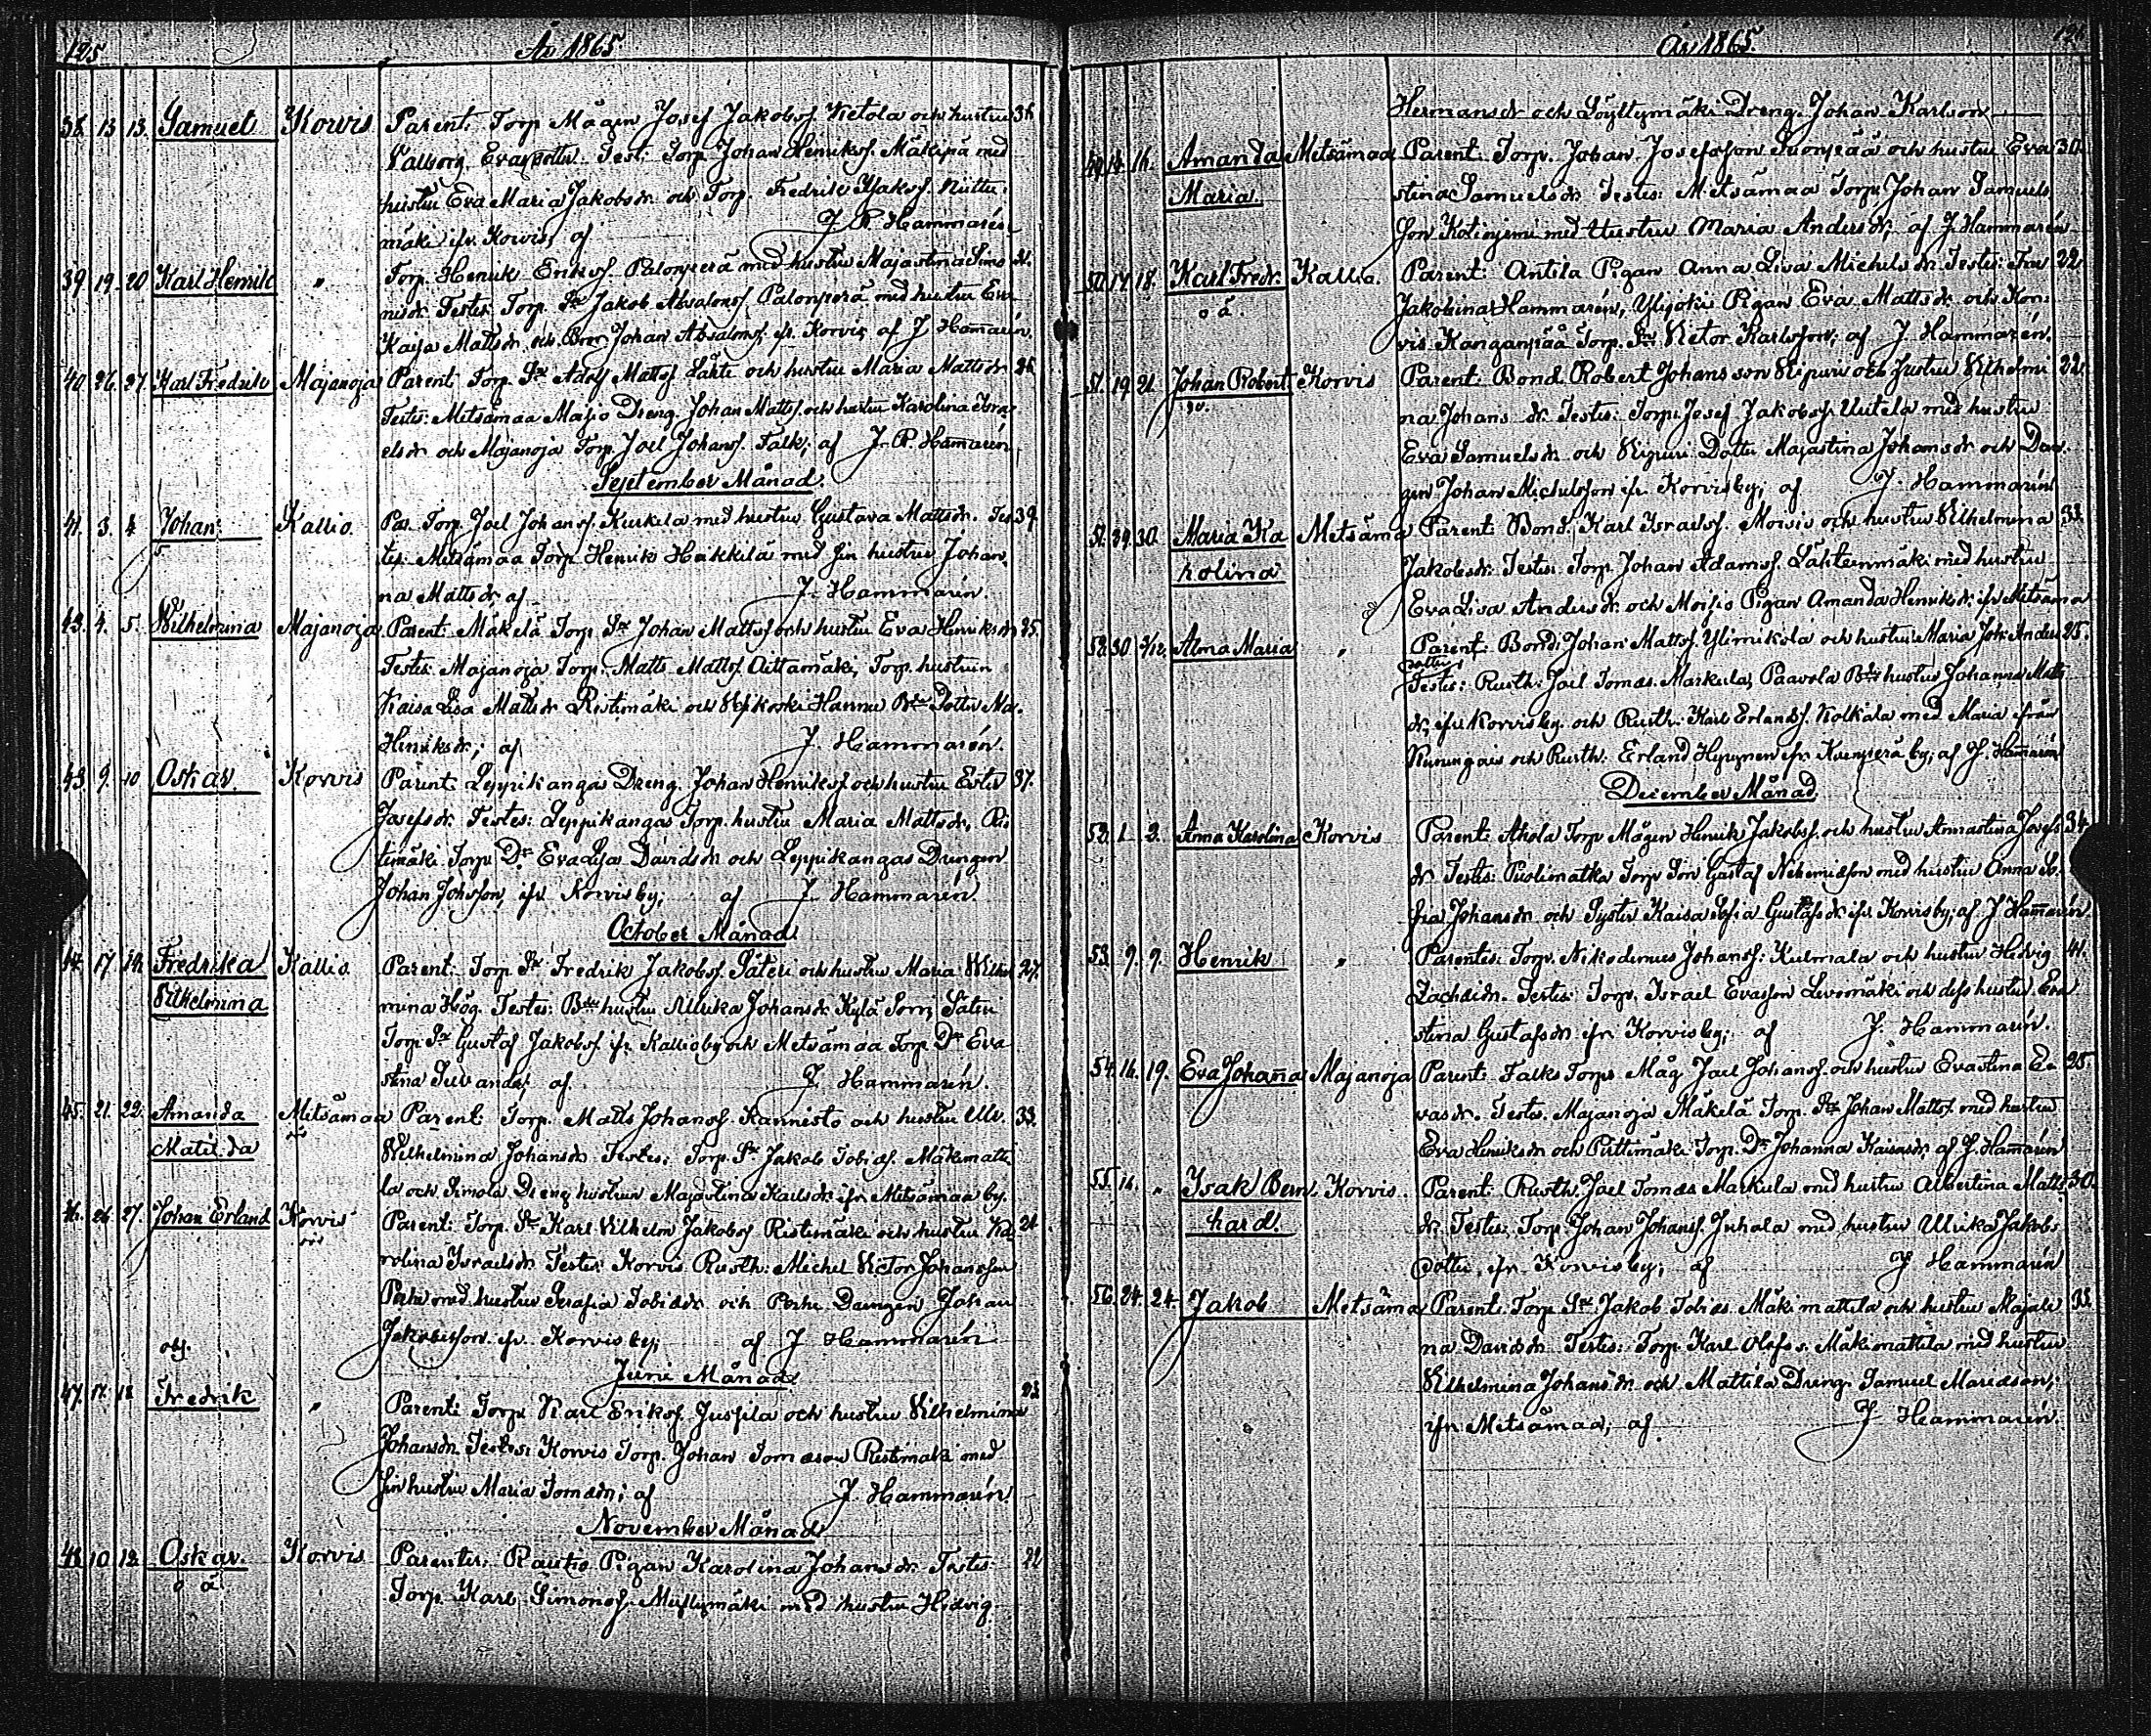 125 År 1865
38. 13 13. Samuel Korvis Parent: Torp Mågen Josef Jakobss. Vietola och hustru 36
Valborg Evasdotter. Test: Torp. Johan Henrikss. Mäkipä med
hustru Eva Maria Jakobsdr. och Torp. Fredrik Isakss. Niittu-
mäki ifr. Korvis, af J. P. Hammarén
39 19 20 Karl Henrik " Torp. Henrik Erikss. Palonperä med hustru Majastina Simo 31.
nsdr. Testes: Torp. Sn Jakob Absalonss. Palonperä med hustru Eva
Kajsa Mattsdr. och Bror Johan Absalonss. fr. Korvis, af J. Hammarén.
40. 26. 27. Karl Fredrik Majanoja Parent: Torp. Sn Adolf Mattss. Lähti och hustru Maria Mattsdr. 26.
Testes: Metsämaa Maijo Dreng. Johan Mattss. och hustru Karolina Isra-
elsdr. och Majanoja Torp. Joel Johanss. Falk; af J. P. Hammarén
September Månad.
41. 3. 4. Johan Kallio. Par. Torp. Joel Johanss. Kurkela med hustru Gustava Mattsdr. Tes 39.
tes: Metsämaa Torp. Henrik Hakkila med sin hustru Johan-
na Mattsdr. af J. Hammarén.
43. 4. 5. Wilhelmina Majanoja Parent: Mäkelä Torp. Sn Johan Mattss. och hustru Eva Henriksdr 25.
Testes: Majanoja Torp. Matts Mattss. Aittamäki, Torp. hustrun
Kaisa Lisa Mattsdr. Ristimäki och Hannu Bds Dotter Ma.
Henriksdr.; af J. Hammarén.
43. 9. 10 Oskar. Korvis Parent: Leppikangas Dreng. Johan Henrikss. och hustru Ester 37.
Josefsdr. Testes: Leppikangas Torp. hustru Maria Mattsdr., Ris
timäki Torp. Dr. Eva Davidsdr. och Leppikangas Drengen
Johan Johsson, ifr. Korvis by; af J. Hammarén.
October Månad.
44. 17. 24. Fredrika Kallio. Parent: Torp. Sn Fredrik Jakobss. Säteri och hustru Maria Wilhel 27.
Vilhelmina mina Hög. Testes: Bds hustru Ulrika Johansdr. Kylä Sorri, Säteri
Torp. Sn Gustaf Jakobss. ifr. Kallio by och Metsämaa Torp. Dr. Eva
stina Suvander; af J. Hammarén.
45. 21. 22. Amanda Metsämaa Parent: Torp. Matts Johanss. Kannisto och hustru Ulr. 33.
Matilda Wilhelmina Johansdr. Testes: Torp. Sn Jakob Tobiass. Mäkimatti
la och Simola Dreng hustrun Majastina Karlsdr. ifr. Metsämaa by.
46. 26 27. Johan Erland Korvis Parent: Torp. Sn Karl Vilhelm Jakobss. Ristimäki och hustru Ka 21
rolina Israelsdr. Testes: Korvis Rusth. Michel Victor Johansson
med hustru Serafia Tobiasdr. och Drengen Johan
Jakobsson ifr. Korvis by; af J. Hammarén
obs. Juni Månad.
47. 17. 18. Fredrik " Parent: Torp. Karl Erikss. Jussila och hustru Vilhelmina 23
Johansdr. Testes: Korvis Torp. Johan Tomasson Ristimäki med
sin hustru Maria Tomasdr.; af J. Hammarén.
November Månad
48. 10 12. Oskar. Korvis Parentes: Rautio Pigan Karolina Johansdr. Testes 21
o ä. Torp. Karl Simonss. Myllymäki med hustru Hedvig
År 1865. 126
Hermansdr och Löyttymäki Dreng. Johan Karlsson
49 14. 16. Amanda Metsämaa Parent: Torp. Johan Josefsson Suonpää och hustru Eva 30.
Maria. stina Samuelsdr. Testes: Metsämaa Torp. Johan Samuels
son Kotiniemi med Hustru Maria Andersdr., af J. Hammarén
50. 17. 18. Karl Fredr. Kallio. Parent: Antila Pigan Anna Lisa Michelsdr. Testes: Fru 22
o ä. Jakobina Hammarén, Ylijoki Pigan Eva Mattsdr. och Kor-
vis Kanganpää Torp. Sn Victor Karlsson; af J. Hammarén.
51. 19 21. Johan Robert Korvis Parent: Bond. Robert Johansson Kipuri och hustru Vilhelmi 22.
na Johans dr. Testes: Torp. Josef Jakobss. Uutela med hustru
Eva Samuelsdr. och Kipuri Dotter Majastina Johansdr. och Dren-
gen Johan Michelsson ifr. Korvis by; af J. Hammarén
51. 29. 30. Maria Ka Metsäma Parent: Bond. Karl Israelss. Moisio och hustru Vilhelmina 33.
rolina Jakobsdr. Testes: Torp. Johan Adamss. Lähteenmäki med hustru
Eva Lisa Andersdr. och Moisio Pigan Amanda Henriksdr. ifr. Metsäma
52. 30. 3/12 Alma Maria " Parent: Bond. Johan Mattss. Ylimikola och hustru Maria Joh. Anders 25.
dotter
Testes: Rusth. Joel Tomas. Markula, Paavola Bds hustru Johanna Matts
dr., ifr. Korvis by. och Rusth. Karl Erlandss. Kolkala med Maria ifrån
och Rusth. Erland Hyrynen ifr. by; af J. Hammarén
December Månad.
52. 1. 2. Anna Karolina Korvis Parent: Ahola Torp. Mågen Henrik Jakobss. och hustru Annastina Josefs 34.
dr. Testes: Puolimatka Torp. Son Gustaf Nehemiasson med hustru Anna So-
fia Johansdr. och Syster Kaisa Sofia Gustafsdr. ifr. Korvis by; af J. Hammarén
53. 9. 9. Henrik " Parentes: Torp. Nikodemus Johanss. Kulmala och hustru Hedvig 41.
Zachrisdr. Testes: Torp. Israel Evasson Levomäki och dess hustru Eva
stina Gustafsdr. ifr. Korvis by; af J. Hammarén.
54. 16. 19. Eva Johanna Majanoja Parent: Falks Torps Måg Joel Johanss. och hustru Evastina E- 25.
vasdr. Testes. Majanoja Mäkelä Torp. Sn Johan Mattss. med hustru
Eva Henriksdr. och Pirttimäki Torp. Dr. Johanna Kaisasdr. af J. Hammarén
55. 16. " Isak Bern Korvis. Parent: Rusth. Joel Tomas Markula med hustru Albertina Matts 30.
hard. dr. Testes: Torp. Johan Johanss. Juhala med hustru Ulrika Jakobs
dotter, ifr. Korvis by, af J. Hammarén
56. 24. 24. Jakob Metsäma Parent: Torp. Sn Jakob Tobias. Mäkimattila och hustru Majale 33.
na Davidsdr. Testes: Torp. Karl Olofss. Mäkimattila med hustru
Vilhelmina Johansdr. och Mattila Dreng Samuel Mariasson,
ifr. Metsämaa; af J. Hammarén.